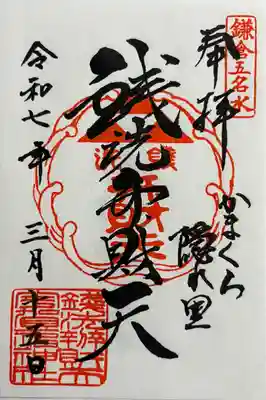 鎌倉五名水
奉拝
かまくら
隠れ里
銭洗弁財天
令和七年
三月
十五日